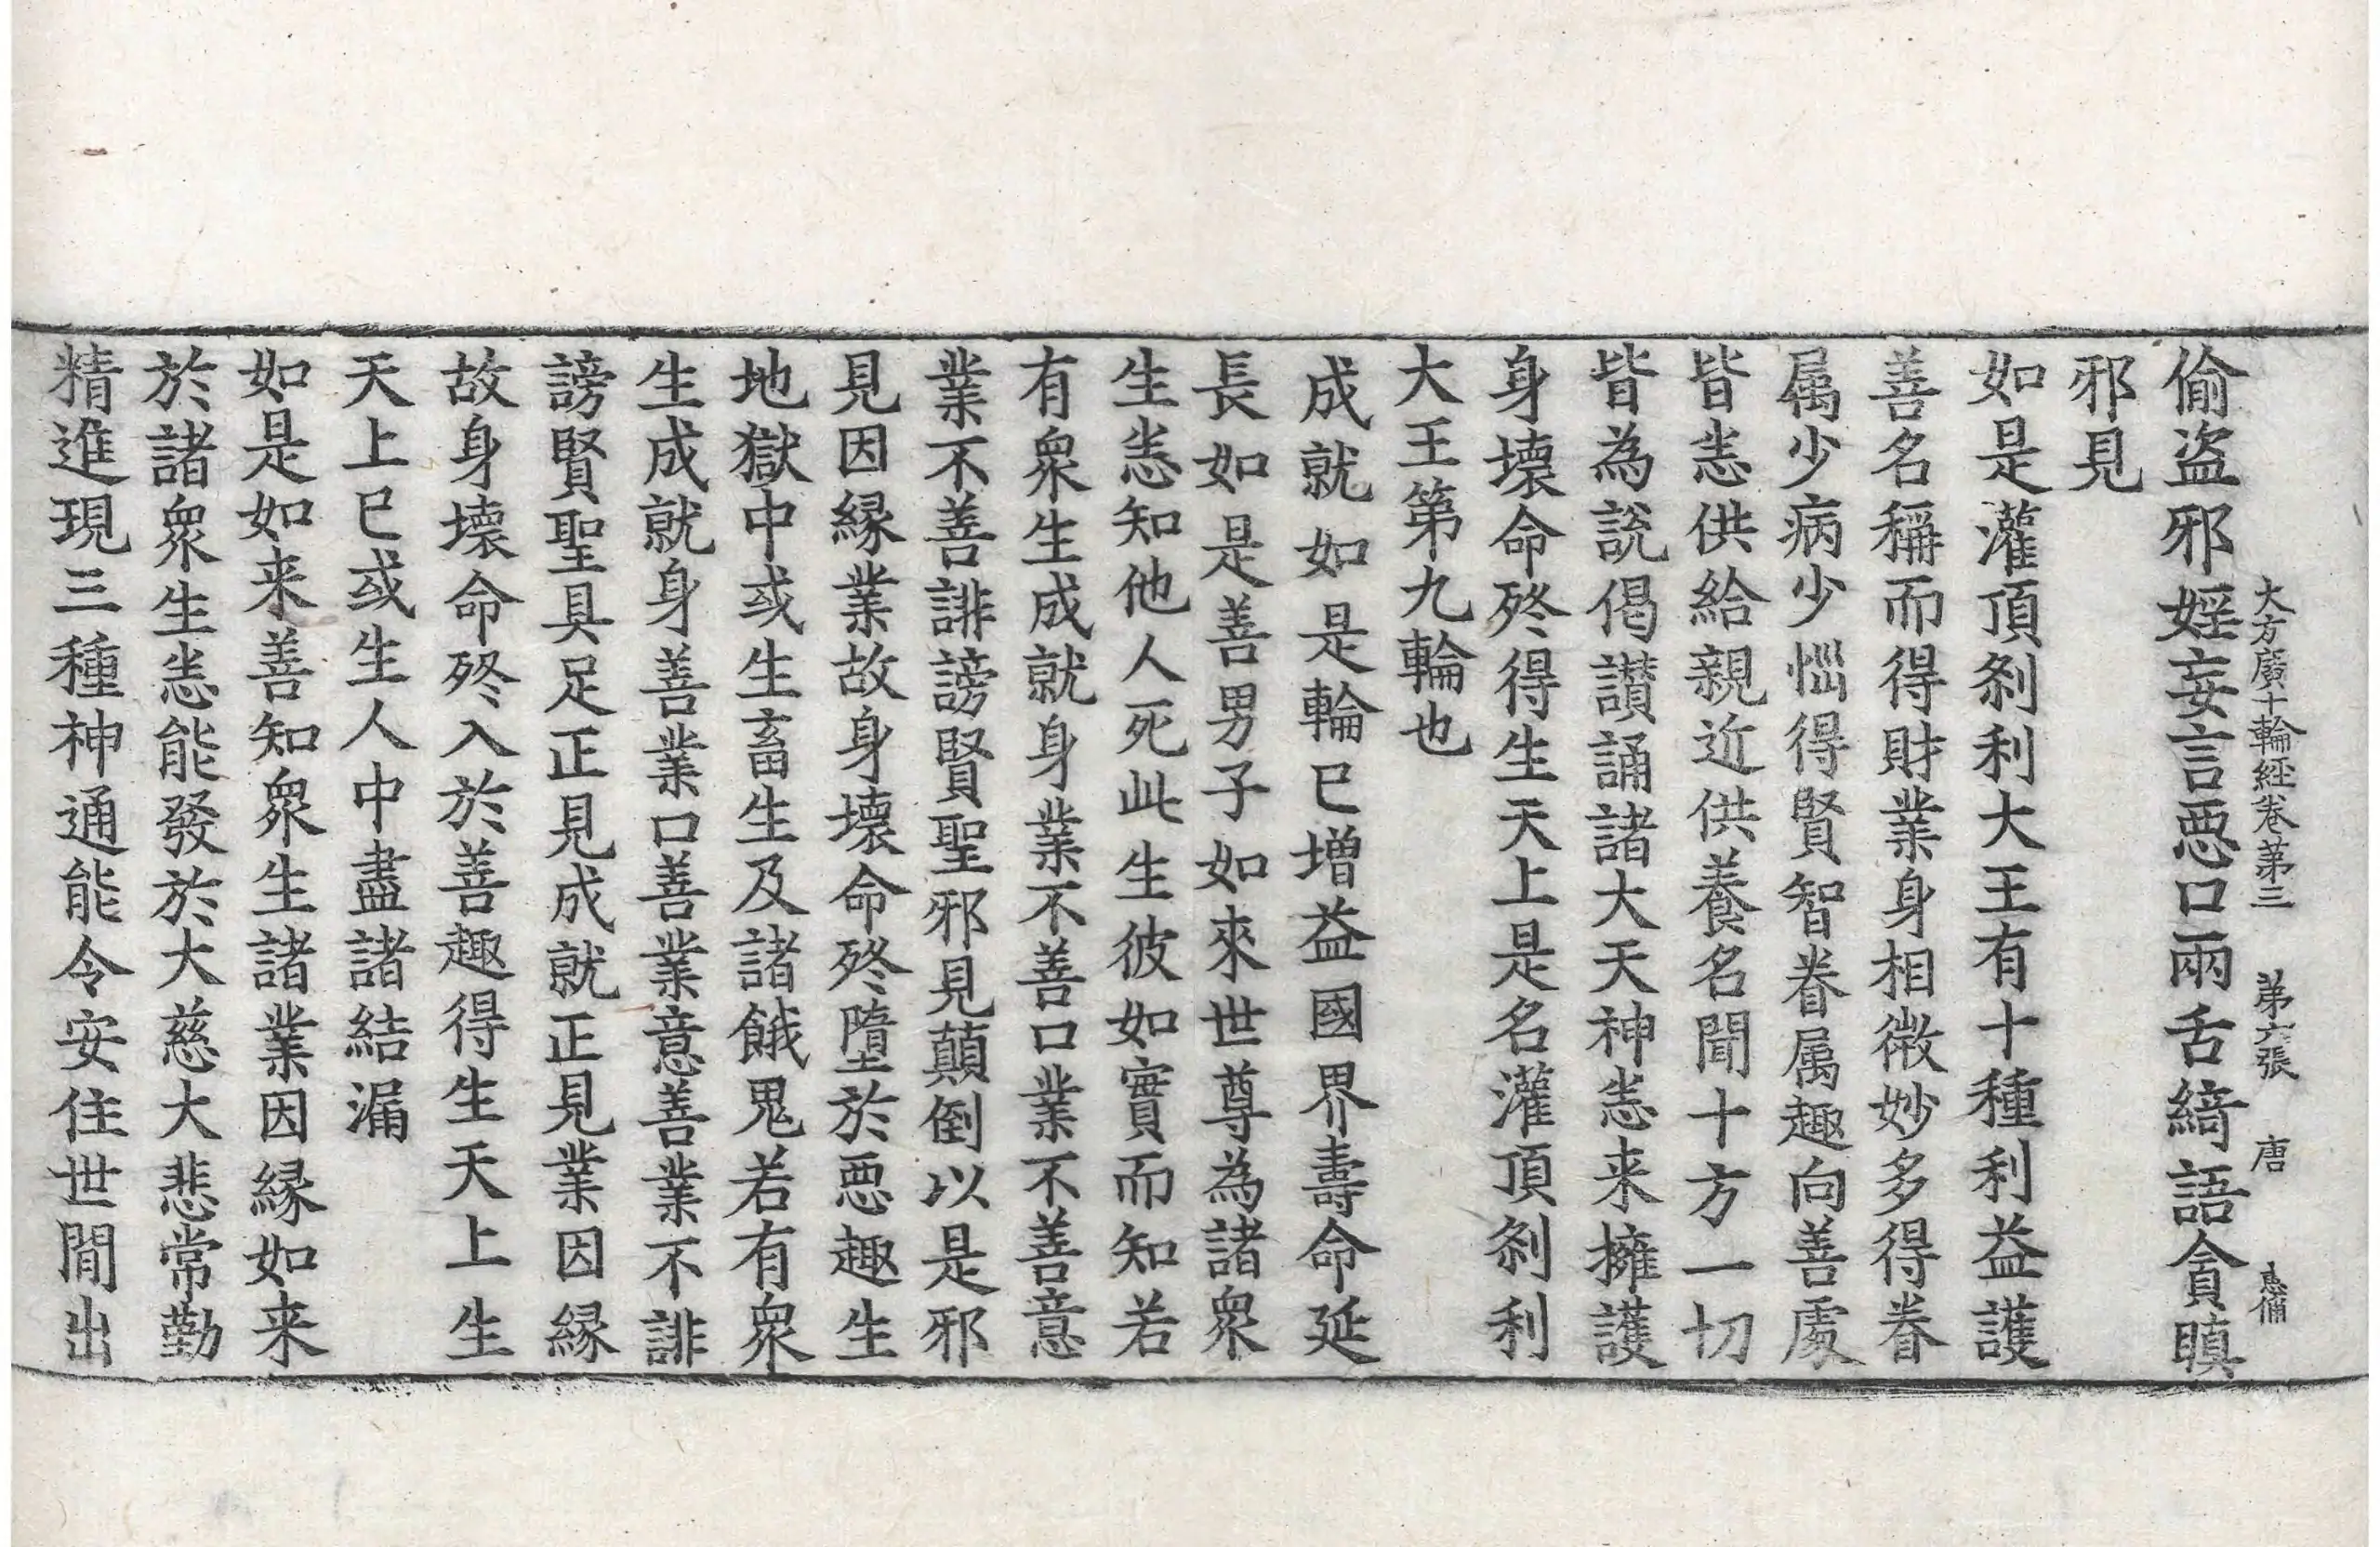 大方廣十輪經卷第三 第六張 唐
偷盗邪婬妄言恶口兩舌綺語貪瞋
邪見
如是灌頂刹利大王有十種利益護
善名稱而得財業身相微妙多得眷
属少病少惱得賢智眷属趣向善處
皆悉供給親近供養名聞十方一切
皆為說偈讃誦諸大天神悉来擁護
身壞命終得生天上是名灌頂刹利
大王第九輪也
成就如是輪已增益國界壽命延
長如是善男子如來世尊為諸衆
生悉知他人死此生彼如實而知若
有衆生成就身業不善口業不善意
業不善誹謗賢聖邪見顛倒以是邪
見因緣業故身壞命終墮於恶趣生
地獄中或生畜生及諸餓鬼若有衆
生成就身善業口善業意善業不誹
謗賢聖具足正見成就正見業因緣
故身壞命終入於善趣得生天上生
天上已或生人中盡諸結漏
如是如来善知衆生諸業因緣如来
於諸衆生悉能發於大慈大悲常勤
精進現三種神通能令安住世間出